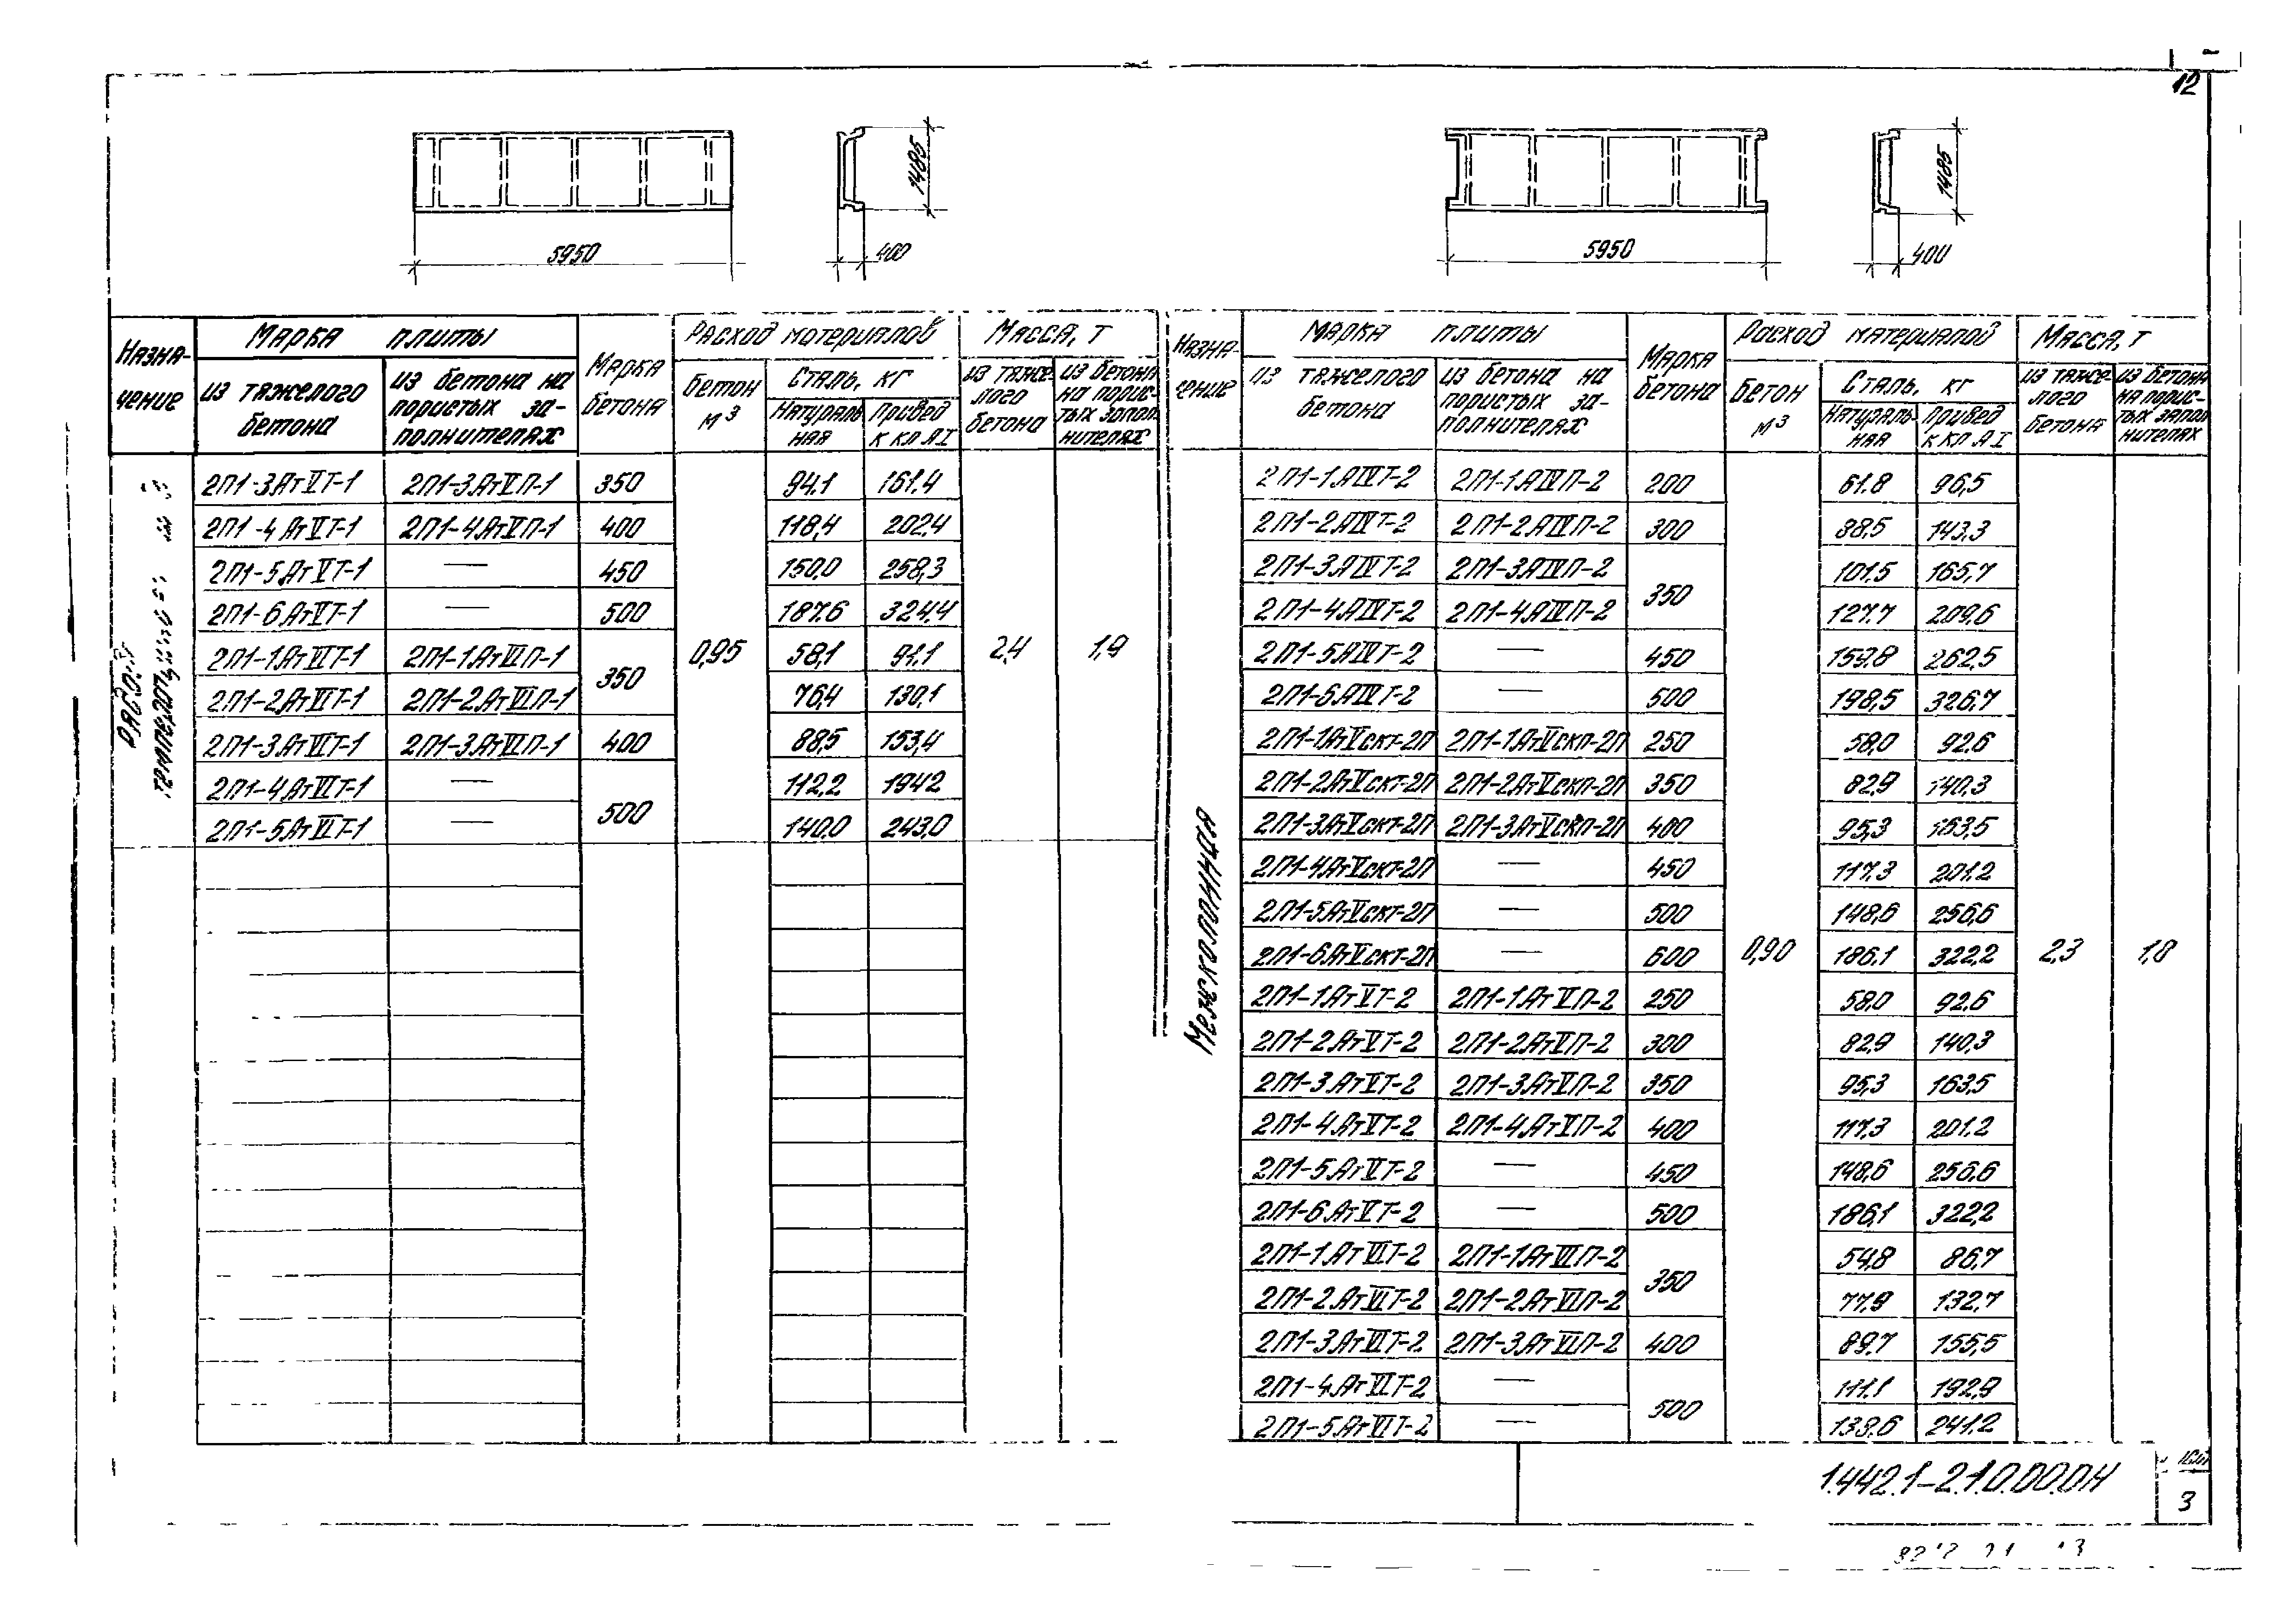 12
5950
400
1485
5950
400
1485
Назна-
чение
Марка плиты
из тяжелого
бетона
из бетона на
пористых за-
полнителях
Марка
бетона
Расход материалов
Бетон
м³
Сталь, кг
Натураль
ная
Привед
к кл А I
Масса, т
из тяже-
лого
бетона
из бетона
на порис-
тых запол
нителях
Рядовая
2П1-3АтVТ-1 2П1-3АтVП-1 350 94.1 161.4
2П1-4АтVТ-1 2П1-4АтVП-1 400 118,4 202,4
2П1-5АтVТ-1 — 450 150,0 258,3
2П1-6АтVТ-1 — 500 187.6 324,4
2П1-1АтVIТ-1 2П1-1АтVIП-1 350 0,95 58,1 91.1 2,4 1,9
2П1-2АтVIТ-1 2П1-2АтVIП-1 76,4 130,1
2П1-3АтVIТ-1 2П1-3АтVIП-1 400 88,5 153,4
2П1-4АтVIТ-1 — 500 112,2 194,2
2П1-5АтVIТ-1 — 140,0 243,0
Назна-
чение
Марка плиты
из тяжелого
бетона
из бетона на
пористых за-
полнителях
Марка
бетона
Расход материалов
Бетон
м³
Сталь, кг
Натураль-
ная
Привед
к кл А I
Масса, т
из тяже-
лого
бетона
из бетона
на порис-
тых запол
нителях
Межколонная
2П1-1АIVТ-2 2П1-1АIVП-2 200 61.8 96,5
2П1-2АIVТ-2 2П1-2АIVП-2 300 88,5 143,3
2П1-3АIVТ-2 2П1-3АIVП-2 350 101,5 165,7
2П1-4АIVТ-2 2П1-4АIVП-2 127.7 209,6
2П1-5АIVТ-2 — 450 159.8 262,5
2П1-6АIVТ-2 — 500 198,5 326,7
2П1-1АтVскт-2П 2П1-1АтVскп-2П 250 58,0 92,6
2П1-2АтVскт-2П 2П1-2АтVскп-2П 350 82,9 140,3
2П1-3АтVскт-2П 2П1-3АтVскп-2П 400 95,3 163,5
2П1-4АтVскт-2П — 450 117,3 201,2
2П1-5АтVскт-2П — 500 148,6 256,6
2П1-6АтVскт-2П — 600 0,90 186,1 322,2 2,3 1,8
2П1-1АтVТ-2 2П1-1АтVП-2 250 58,0 92,6
2П1-2АтVТ-2 2П1-2АтVП-2 300 82,9 140,3
2П1-3АтVТ-2 2П1-3АтVП-2 350 95,3 163,5
2П1-4АтVТ-2 2П1-4АтVП-2 400 117,3 201.2
2П1-5АтVТ-2 — 450 148,6 256,6
2П1-6АтVТ-2 — 500 186,1 322,2
2П1-1АтVIТ-2 2П1-1АтVIП-2 350 54,8 86,7
2П1-2АтVIТ-2 2П1-2АтVIП-2 77,9 132,7
2П1-3АтVIТ-2 2П1-3АтVIП-2 400 89,7 155,5
2П1-4АтVIТ-2 — 500 111.1 192,9
2П1-5АтVIТ-2 — 138,6 241,2
1.442.1-2.1.0.00.ПН
3